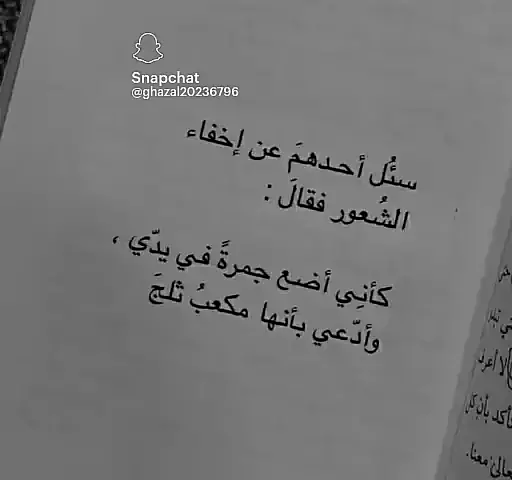 Snapchat
@ghazal20236796
سئُل أحدهمَ عن إخفاء
الشُعور فقالَ :
كأنِي أضع جمرةً في يدّي ،
وأدّعي بأنها مكعبُ ثلجَ
لا أعرف
معنا.